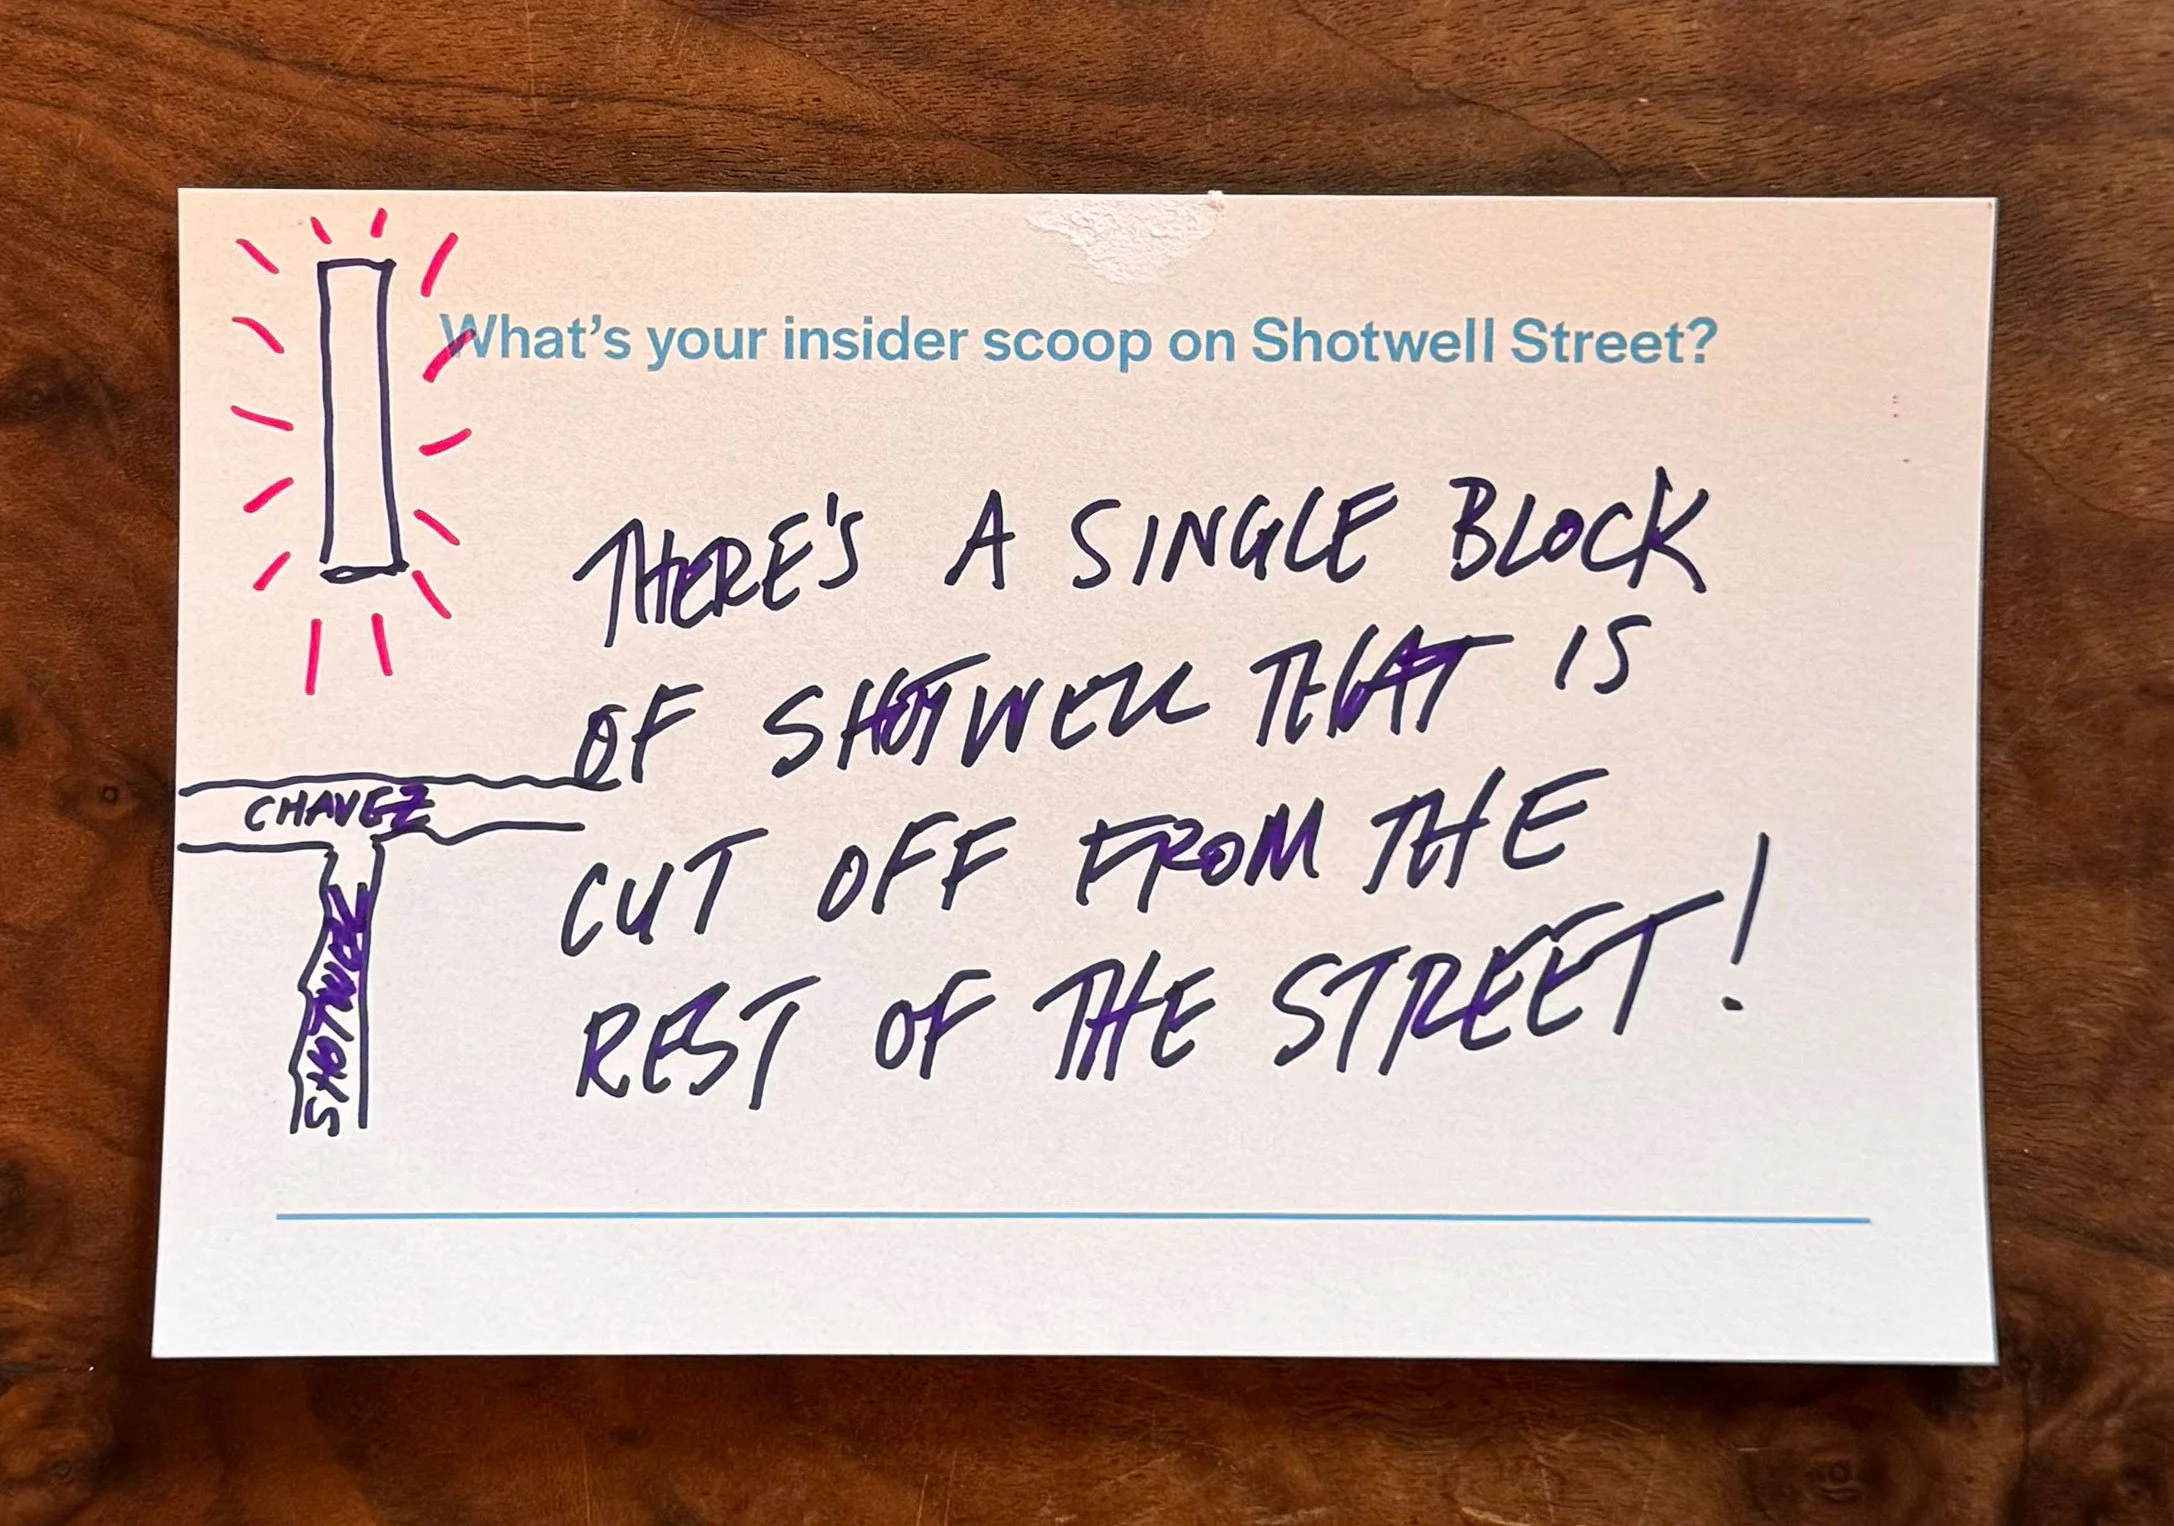 What's your insider scoop on Shotwell Street?
THERE'S A SINGLE BLOCK
OF SHOTWELL THAT IS
CUT OFF FROM THE
REST OF THE STREET!
CHAVEZ